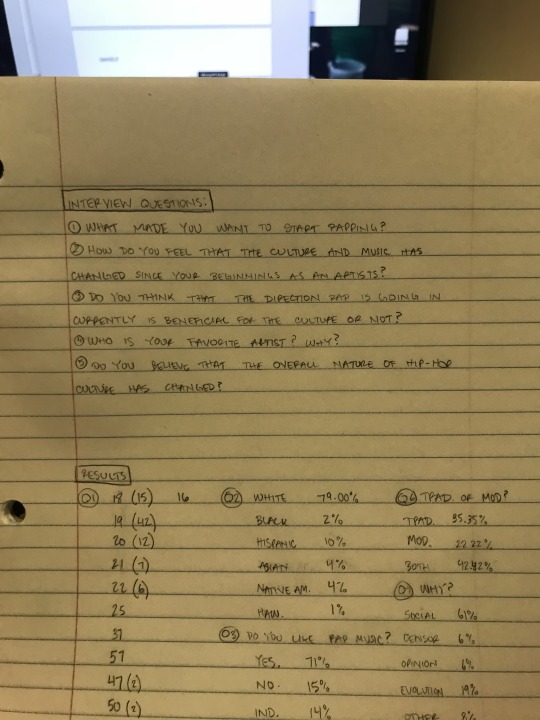 INTERVIEW QUESTIONS:
① WHAT MADE YOU WANT TO START RAPPING?
② HOW DO YOU FEEL THAT THE CULTURE AND MUSIC HAS
CHANGED SINCE YOUR BEGINNINGS AS AN ARTISTS?
③ DO YOU THINK THAT THE DIRECTION RAP IS GOING IN
CURRENTLY IS BENEFICIAL FOR THE CULTURE OR NOT?
④ WHO IS YOUR FAVORITE ARTIST? WHY?
⑤ DO YOU BELIEVE THAT THE OVERALL NATURE OF HIP-HOP
CULTURE HAS CHANGED?
RESULTS
Q1 18 (15) 16
19 (42)
20 (12)
21 (7)
22 (6)
25
37
57
47 (2)
50 (2)
Q2 WHITE 79.00%
BLACK 2%
HISPANIC 10%
ASIAN 4%
NATIVE AM. 4%
HAW. 1%
Q3 DO YOU LIKE RAP MUSIC?
YES. 71%
NO. 15%
IND. 14%
Q6 TRAD. OR MOD?
TRAD. 35.35%
MOD. 22.22%
BOTH. 42.42%
Q7 WHY?
SOCIAL 61%
CENSOR 6%
OPINION 6%
EVOLUTION 19%
OTHER 8%